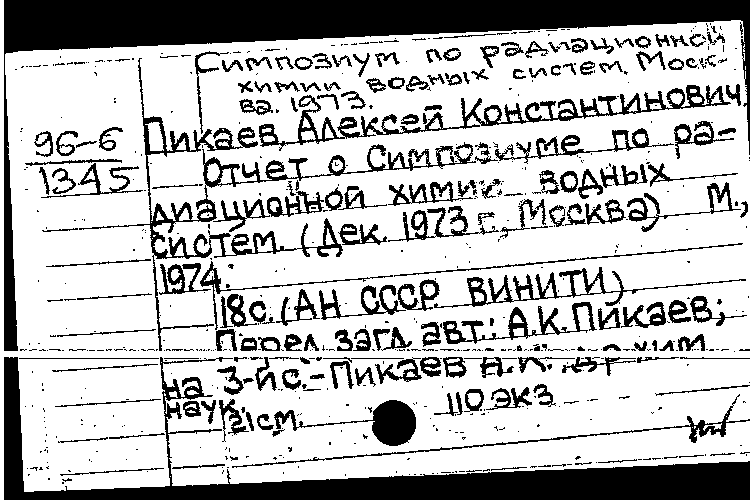 Симпозиум по радиационной
химии водных систем. Моск-
ва. 1973.
96-6
1345
Пикаев, Алексей Константинович
Отчет о Симпозиуме по ра-
диационной химии водных
систем. (Дек. 1973 г., Москва). М.,
1974.
18с. (АН СССР ВИНИТИ).
Перед загл. авт.: А.К. Пикаев;
на 3-й с. - Пикаев А.К., д-р хим.
наук.
21см. 110 экз